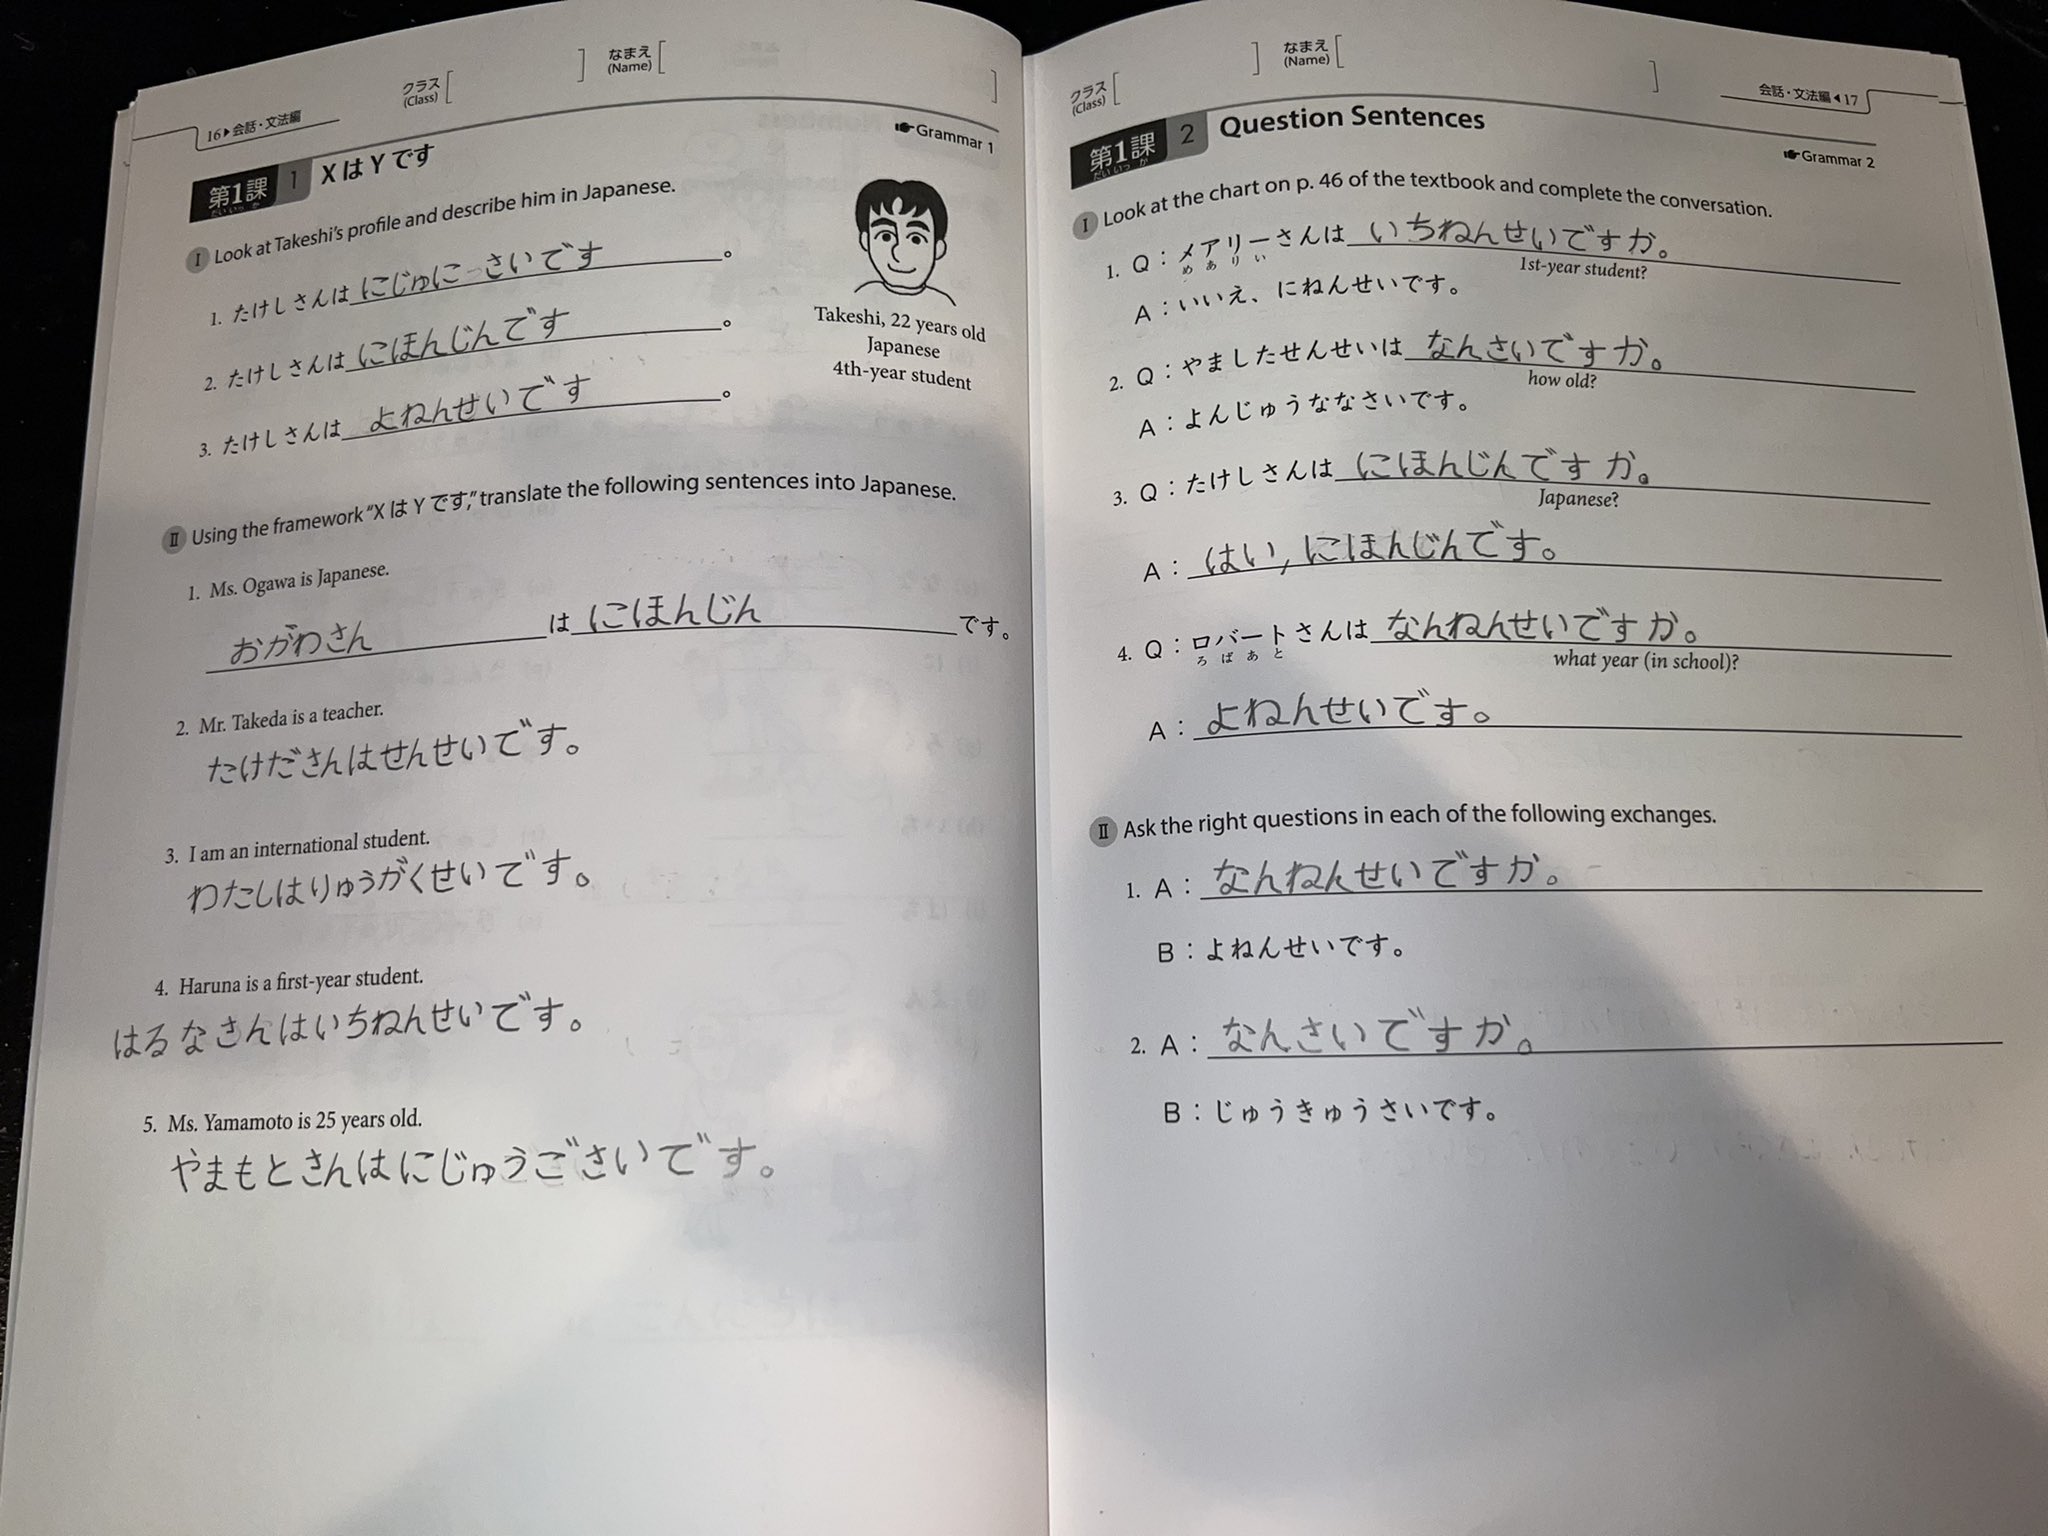 16▶会話・文法編
クラス [ ] なまえ [ ]
(Class) (Name)
第1課 1 XはYです
だいいっか
☛Grammar 1
I Look at Takeshi's profile and describe him in Japanese.
1. たけしさんは にじゅに さいです 。
2. たけしさんは にほんじんです 。
3. たけしさんは よねんせいです 。
Takeshi, 22 years old
Japanese
4th-year student
II Using the framework “XはYです,” translate the following sentences into Japanese.
1. Ms. Ogawa is Japanese.
おがわさん は にほんじん です。
2. Mr. Takeda is a teacher.
たけださんはせんせいです。
3. I am an international student.
わたしはりゅうがくせいです。
4. Haruna is a first-year student.
はるなさんはいちねんせいです。
5. Ms. Yamamoto is 25 years old.
やまもとさんはにじゅうごさいです。
クラス [ ] なまえ [ ]
(Class) (Name)
会話・文法編◀17
第1課 2 Question Sentences
だいいっか
☛Grammar 2
I Look at the chart on p. 46 of the textbook and complete the conversation.
1. Q：メアリーさんは いちねんせいですか。
めありい
1st-year student?
A：いいえ、にねんせいです。
2. Q：やましたせんせいは なんさいですか。
how old?
A：よんじゅうななさいです。
3. Q：たけしさんは にほんじんですか。
Japanese?
A：はい, にほんじんです。
4. Q：ロバートさんは なんねんせいですか。
ろばあと
what year (in school)?
A：よねんせいです。
II Ask the right questions in each of the following exchanges.
1. A：なんねんせいですか。
B：よねんせいです。
2. A：なんさいですか。
B：じゅうきゅうさいです。